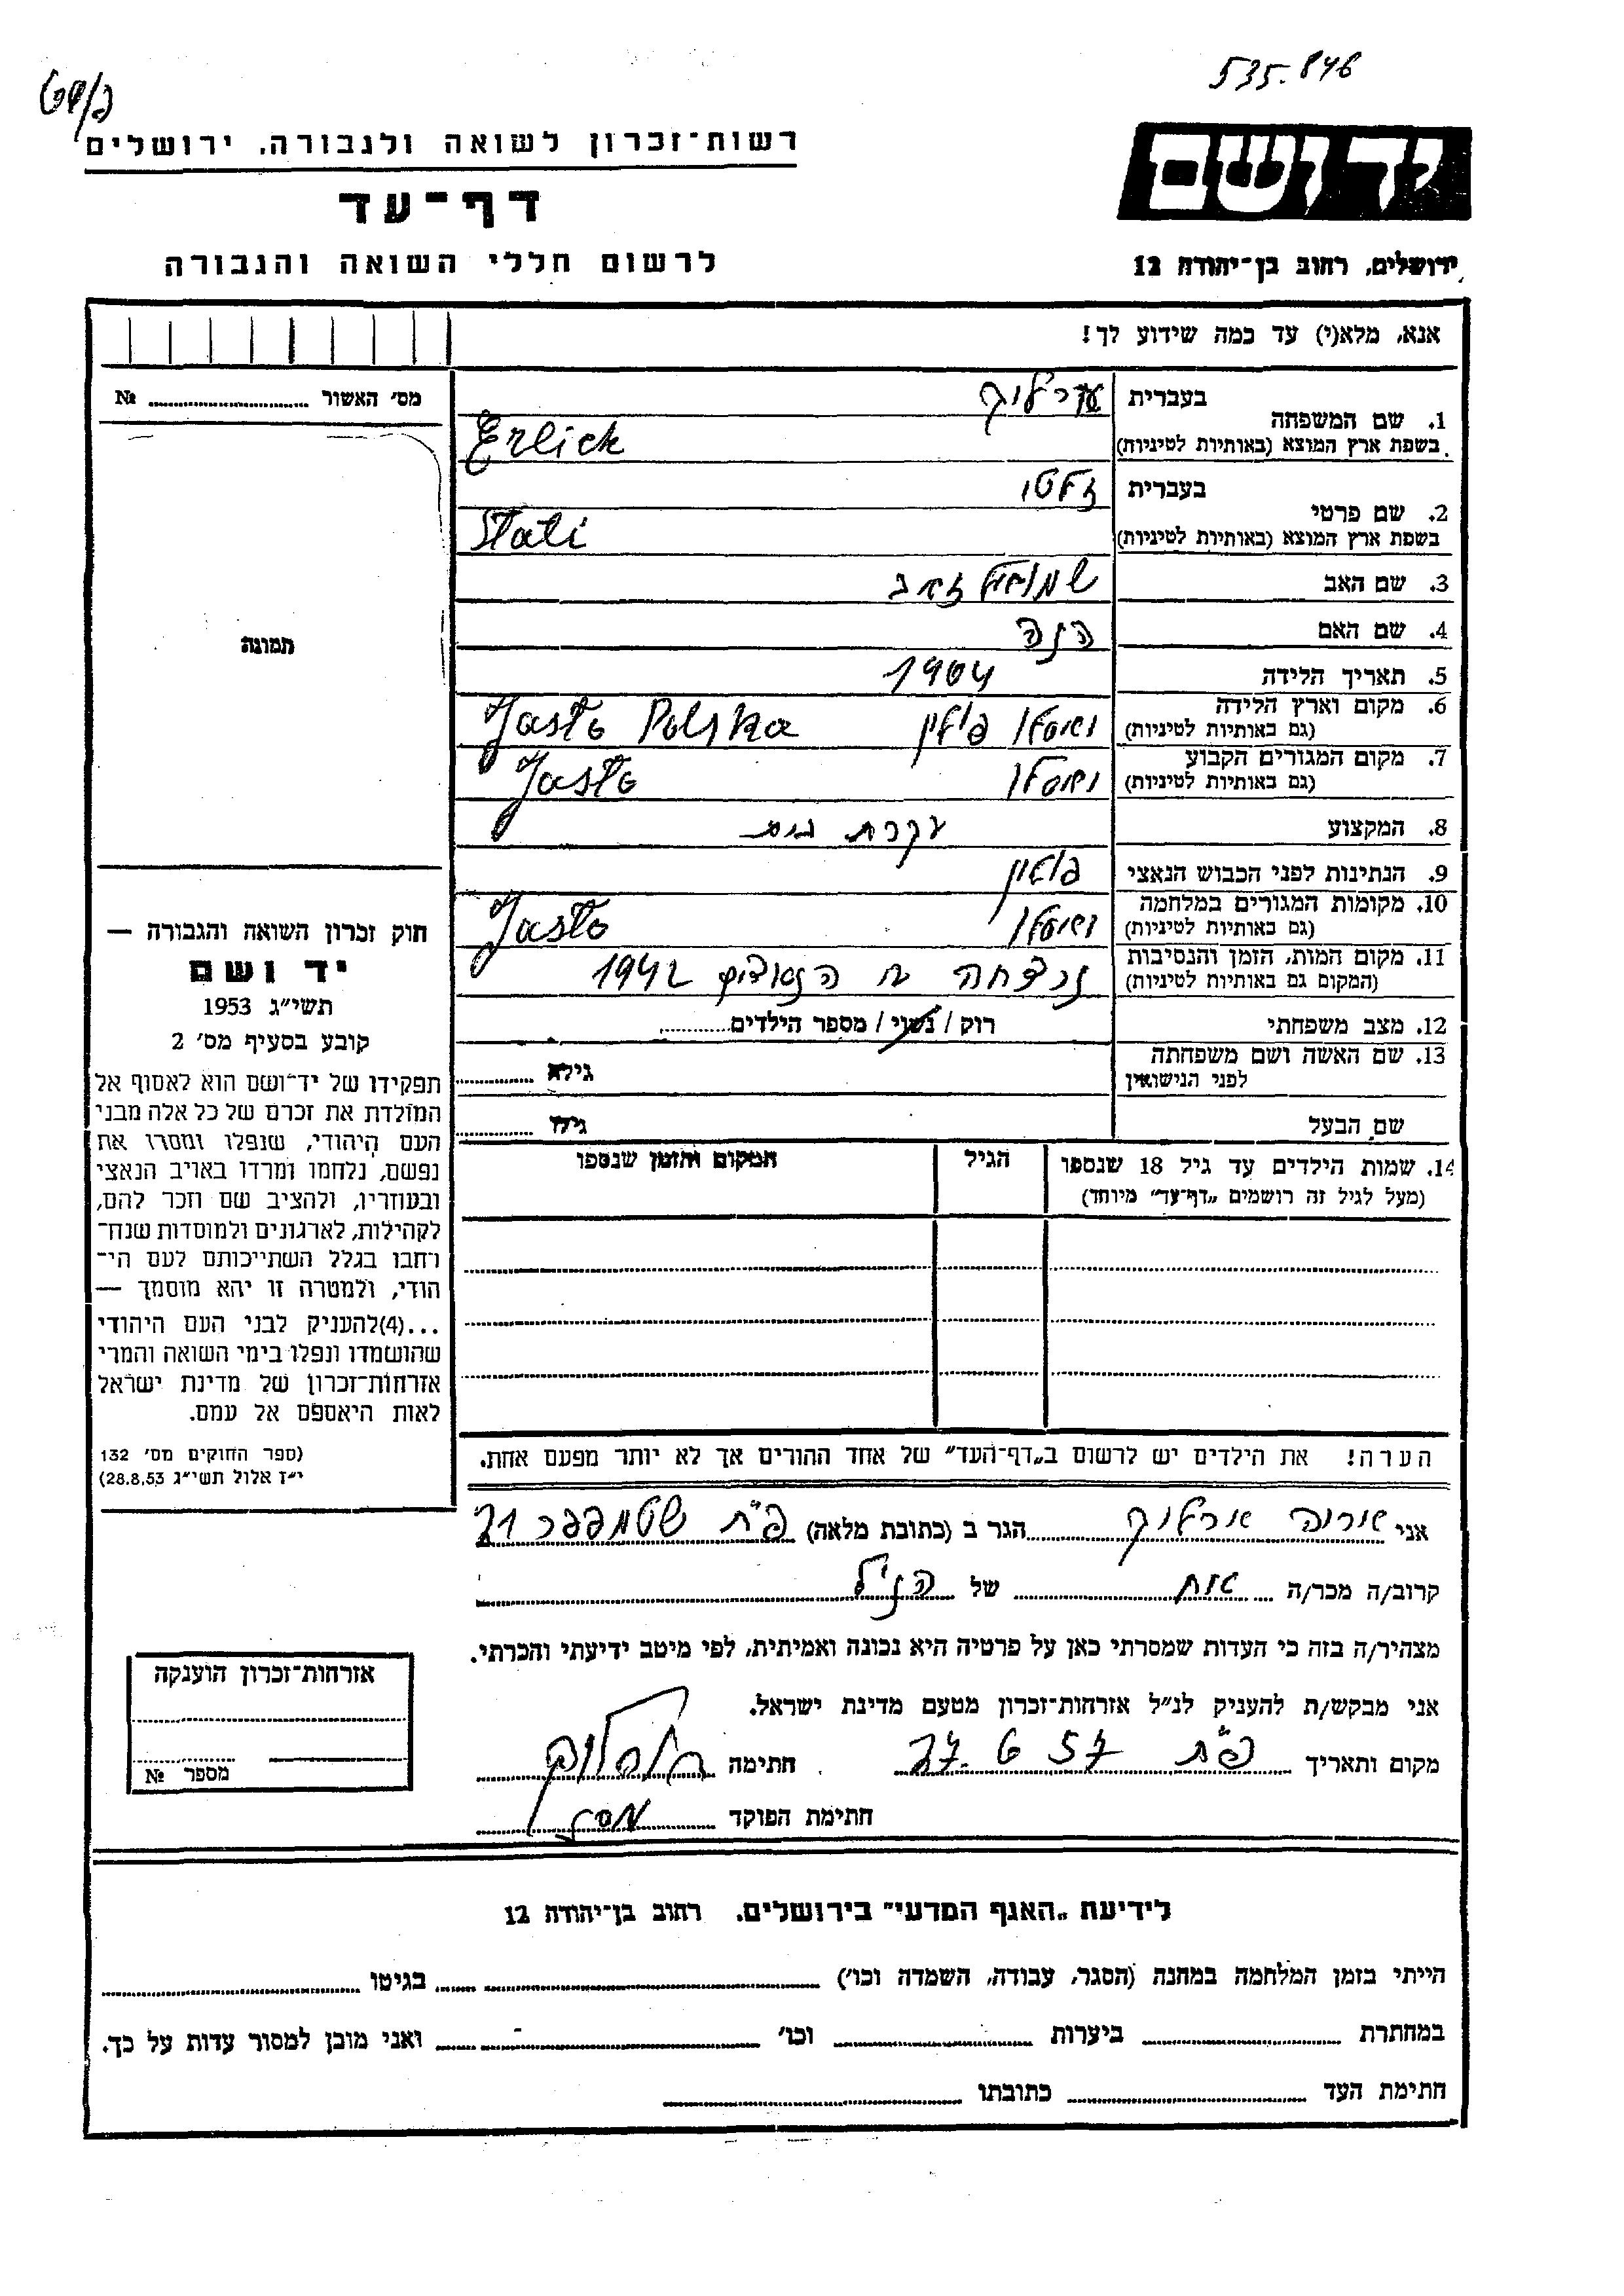 535.846
רשות-זכרון לשואה ולגבורה, ירושלים
יד ושם
דף-עד
ירושלים, רחוב בן-יהודה 12
לרשום חללי השואה והגבורה
אנא, מלא(י) עד כמה שידוע לך!
מס׳ האשור № ........
תמונה
חוק זכרון השואה והגבורה —
יד ושם
תשי״ג 1953
קובע בסעיף מס׳ 2
תפקידו של יד-ושם הוא לאסוף אל
המולדת את זכרם של כל אלה מבני
העם היהודי, שנפלו ומסרו את
נפשם, נלחמו ומרדו באויב הנאצי
ובעוזריו, ולהציב שם וזכר להם,
לקהילות, לארגונים ולמוסדות שנח-
רחבו בגלל השתייכותם לעם הי-
הודי, ולמטרה זו יהא מוסמך —
...(4)להעניק לבני העם היהודי
שהושמדו ונפלו בימי השואה והמרי
אזרחות-זכרון של מדינת ישראל
לאות היאספם אל עמם.
(ספר החוקים מס׳ 132
י״ז אלול תשי״ג 28.8.53)
1. שם המשפחה
בעברית ערליך
בשפת ארץ המוצא (באותיות לטיניות) Erlick
2. שם פרטי
בעברית זלטי
בשפת ארץ המוצא (באותיות לטיניות) Slati
3. שם האב שמואל זאב
4. שם האם הנה
5. תאריך הלידה 1904
6. מקום וארץ הלידה
(גם באותיות לטיניות) יאסלו פולין Jasło Polska
7. מקום המגורים הקבוע
(גם באותיות לטיניות) יאסלו Jasło
8. המקצוע עקרת בית
9. הנתינות לפני הכבוש הנאצי פולין
10. מקומות המגורים במלחמה
(גם באותיות לטיניות) יאסלו Jasło
11. מקום המות, הזמן והנסיבות
(המקום גם באותיות לטיניות) נרצחה ע״י הנאצים 1942
12. מצב משפחתי רוק / נשוי / מספר הילדים........
13. שם האשה ושם משפחתה
לפני הנישואין גילה ........
שם הבעל גילו ........
14. שמות הילדים עד גיל 18 שנספו
(מעל לגיל זה רושמים „דף-עד״ מיוחד)
הגיל
המקום והזמן שנספו
הערה! את הילדים יש לרשום ב„דף-העד״ של אחד ההורים אך לא יותר מפעם אחת.
אני ארליך הגר ב (כתובת מלאה) פ״ת שטמפפר 21
קרוב/ה מכר/ה אח של הנ״ל
מצהיר/ה בזה כי העדות שמסרתי כאן על פרטיה היא נכונה ואמיתית, לפי מיטב ידיעתי והכרתי.
אני מבקש/ת להעניק לנ״ל אזרחות-זכרון מטעם מדינת ישראל.
מקום ותאריך פ״ת 27.6 57 חתימה
חתימת הפוקד
אזרחות-זכרון הוענקה
מספר №
לידיעת „האגף המדעי״ בירושלים, רחוב בן-יהודה 12
הייתי בזמן המלחמה במחנה (הסגר, עבודה, השמדה וכו׳) ........ בגיטו ........
במחתרת ........ ביערות ........ וכו׳ ........ ואני מוכן למסור עדות על כך.
חתימת העד ........ כתובתו ........